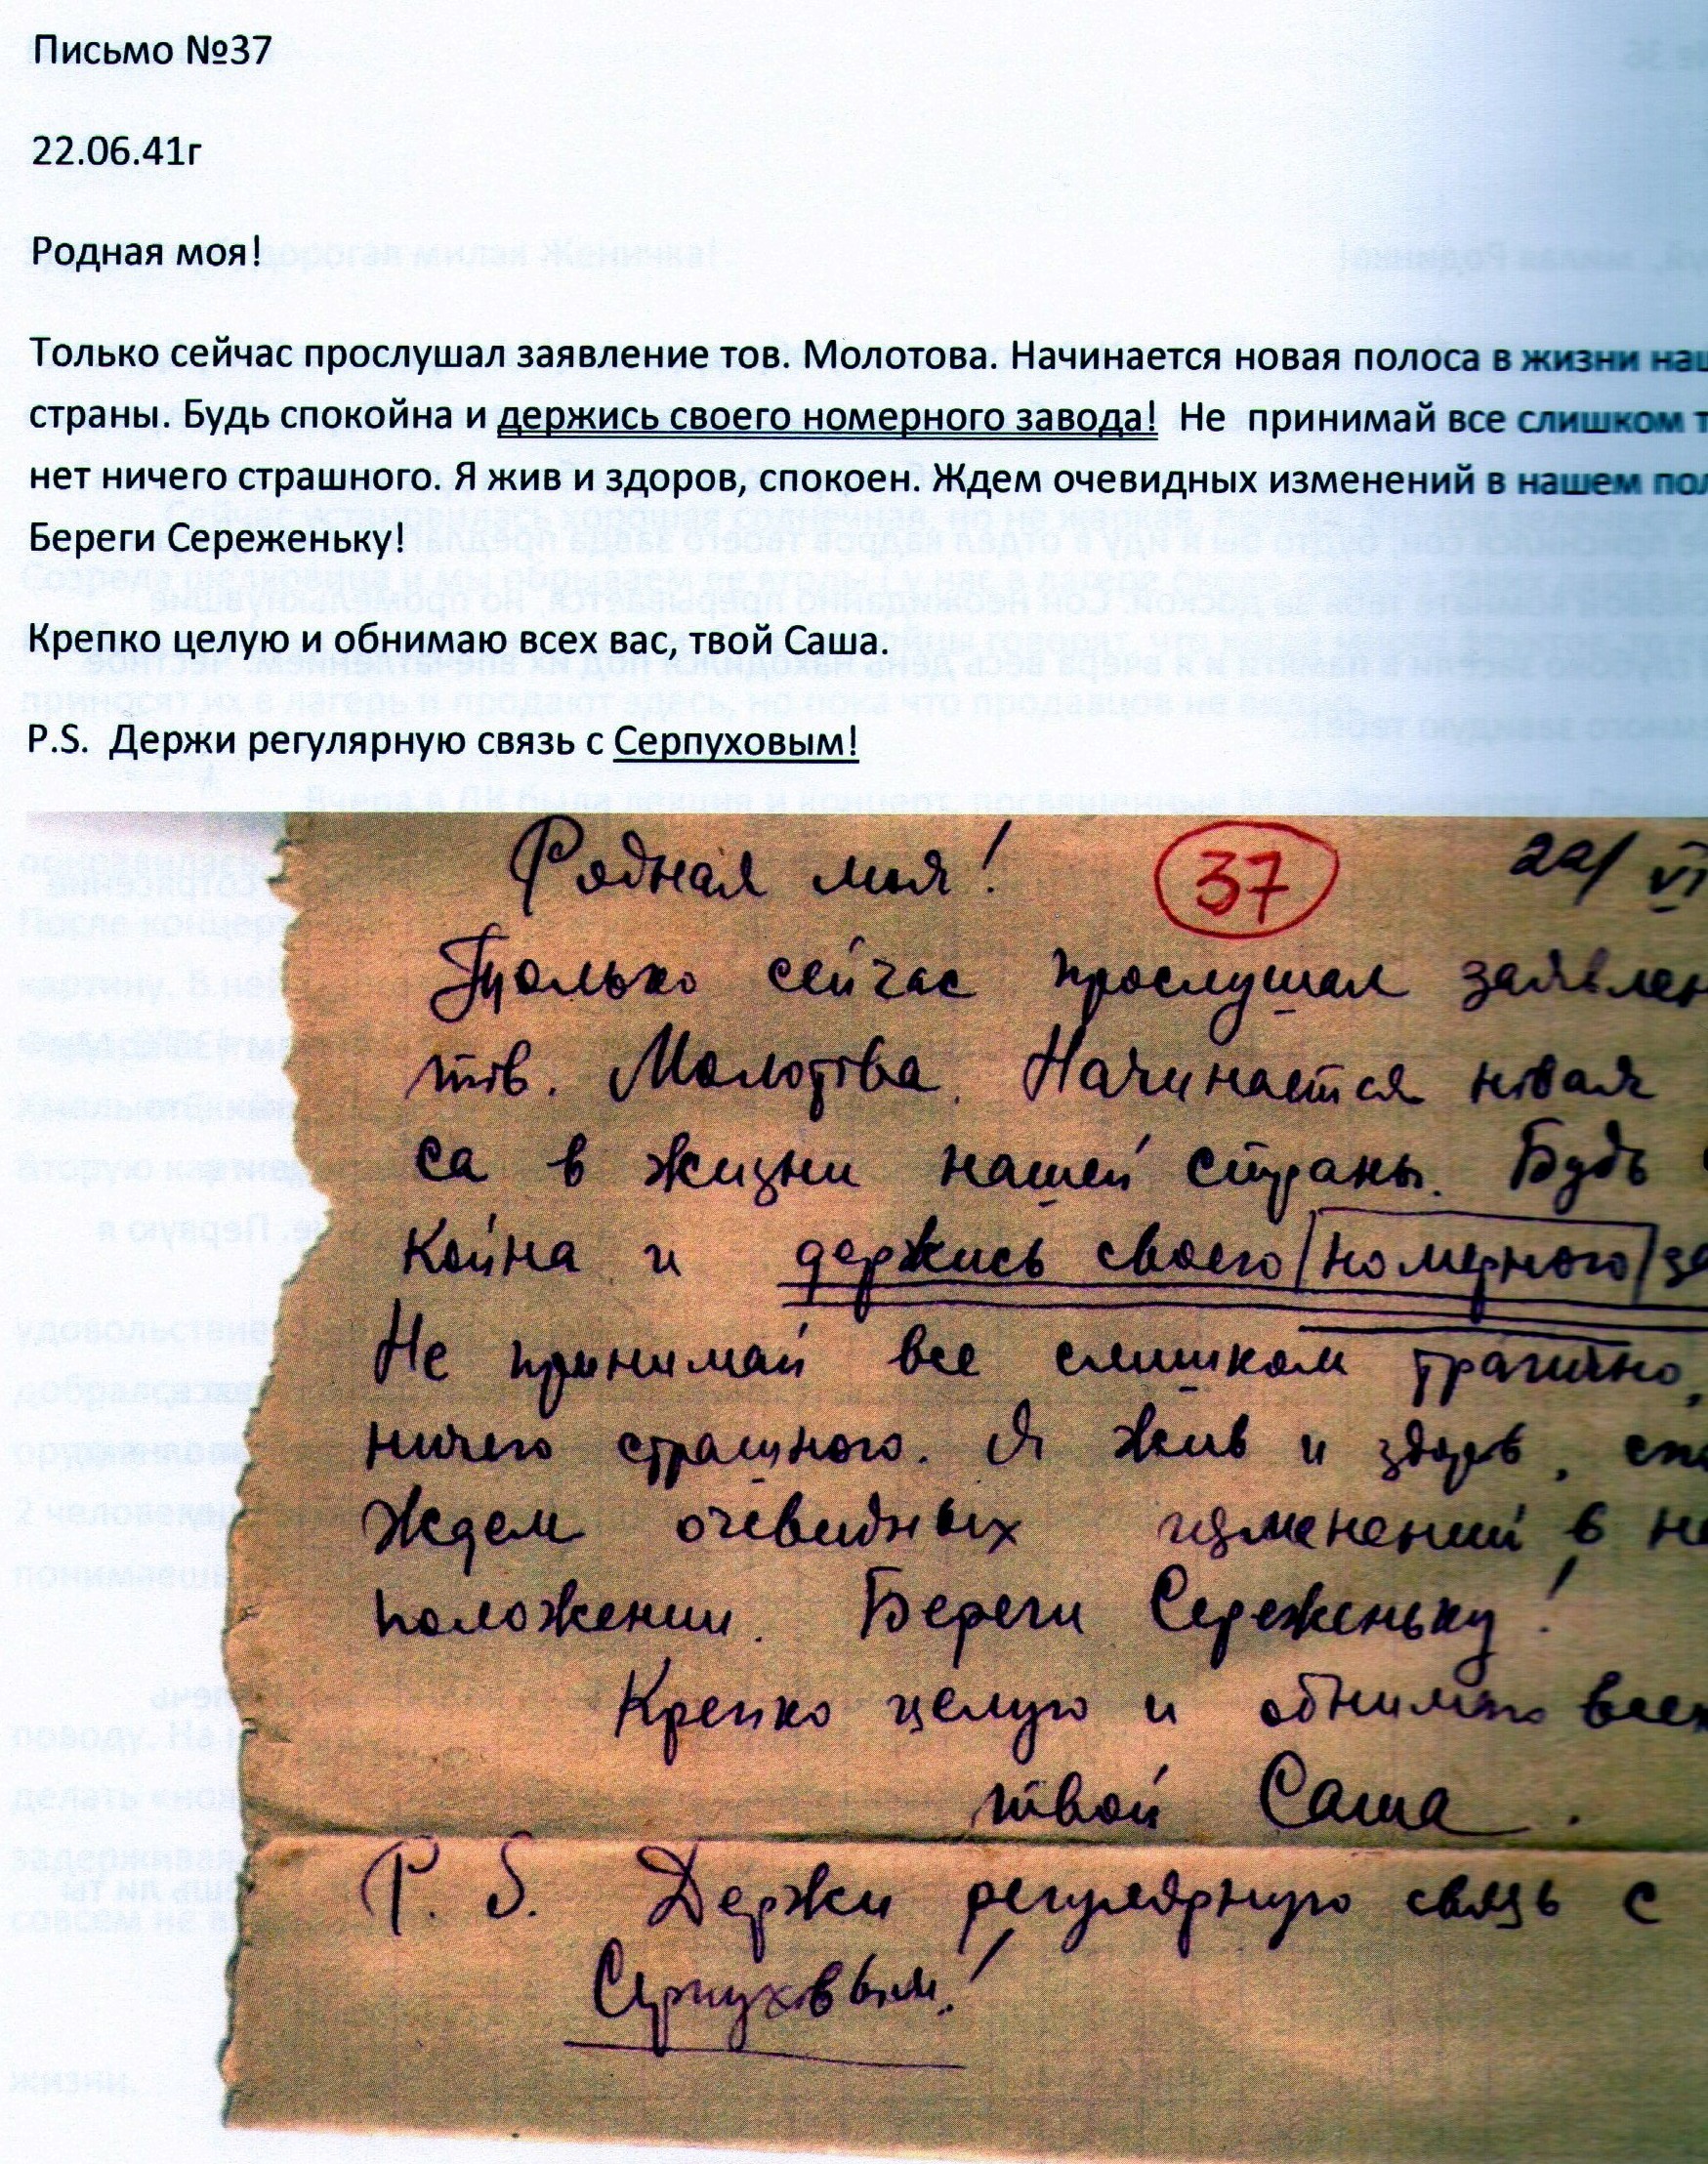 Письмо №37
22.06.41г
Родная моя!
Только сейчас прослушал заявление тов. Молотова. Начинается новая полоса в жизни наш
страны. Будь спокойна и держись своего номерного завода! Не принимай все слишком т
нет ничего страшного. Я жив и здоров, спокоен. Ждем очевидных изменений в нашем пол
Береги Сереженьку!
Крепко целую и обнимаю всех вас, твой Саша.
P.S. Держи регулярную связь с Серпуховым!
Родная моя! 37 22/VI
Только сейчас прослушал заявлен
тов. Молотова. Начинается новая
са в жизни нашей страны. Будь
койна и держись своего номерного за
Не принимай все слишком трагично,
ничего страшного. Я жив и здоров, спо
Ждем очевидных изменений в на
положении. Береги Сереженьку!
Крепко целую и обнимаю всех
твой Саша.
P. S. Держи регулярную связь с
Серпуховым!